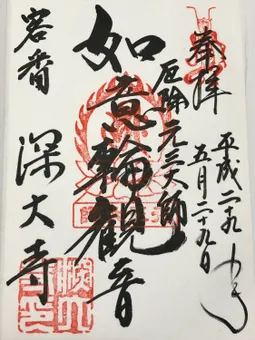 奉拝
平成二九年
五月二十九日
厄除元三大師
如意輪觀音
客番
深大寺